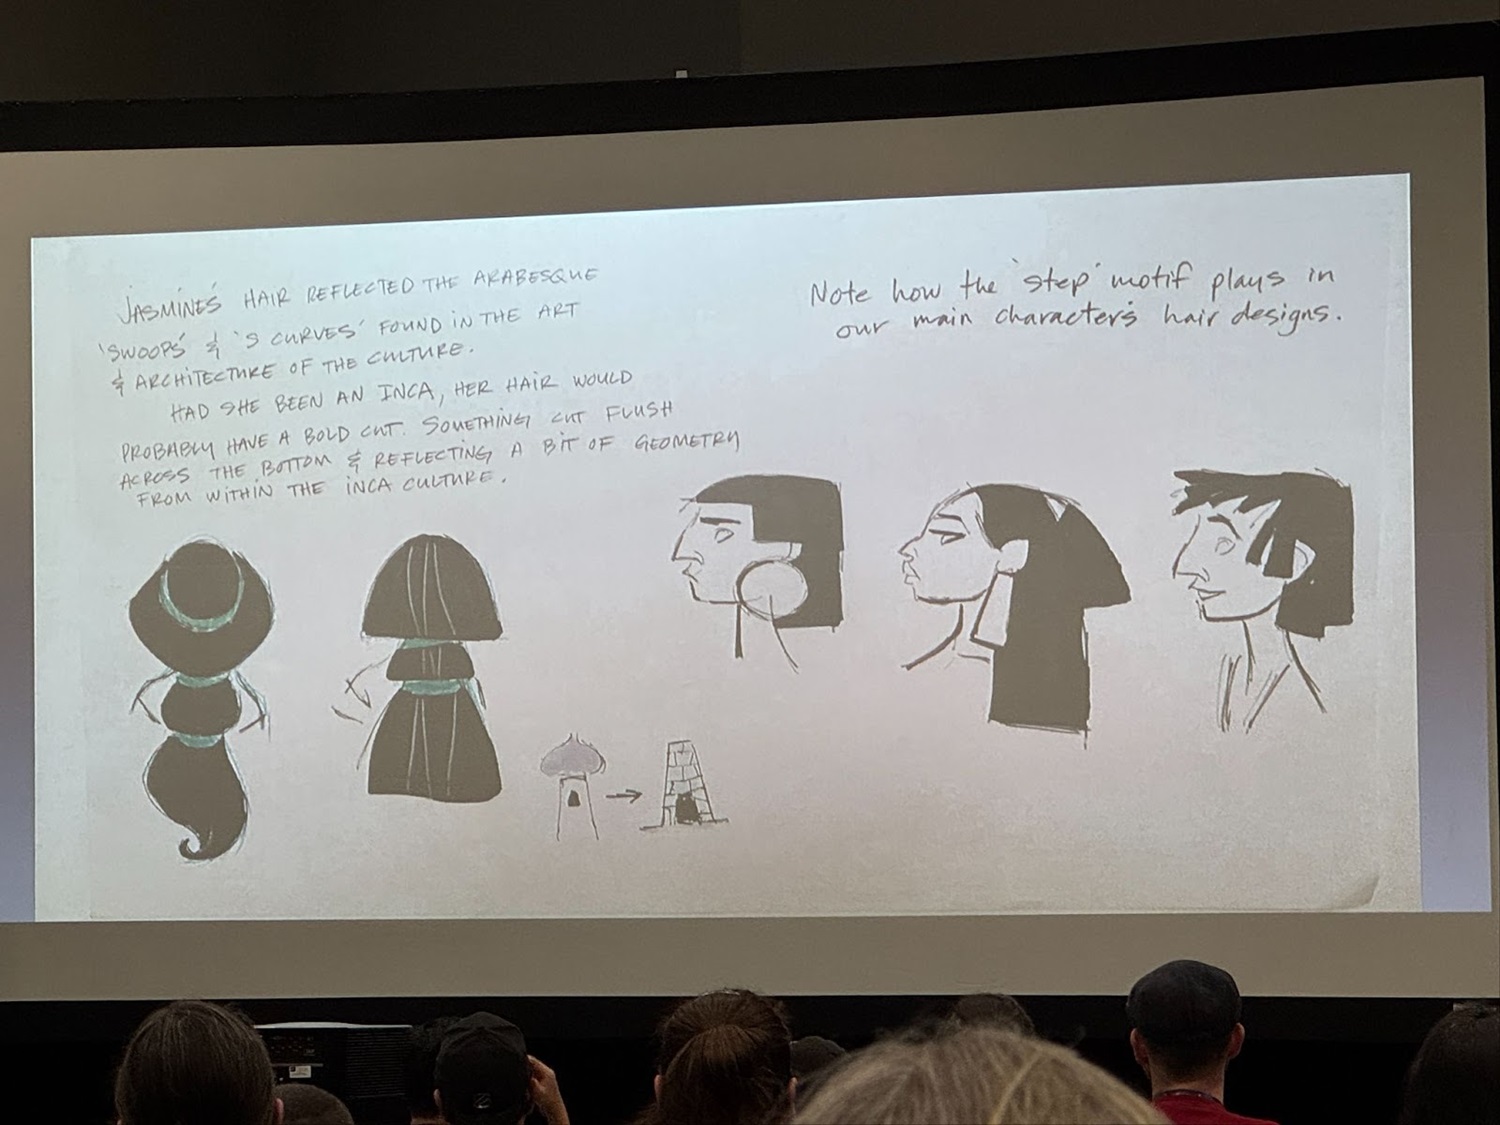 JASMINE'S HAIR REFLECTED THE ARABESQUE
'SWOOPS' & 'S CURVES' FOUND IN THE ART
& ARCHITECTURE OF THE CULTURE.
HAD SHE BEEN AN INCA, HER HAIR WOULD
PROBABLY HAVE A BOLD CUT. SOMETHING CUT FLUSH
ACROSS THE BOTTOM & REFLECTING A BIT OF GEOMETRY
FROM WITHIN THE INCA CULTURE.
Note how the 'step' motif plays in
our main character's hair designs.